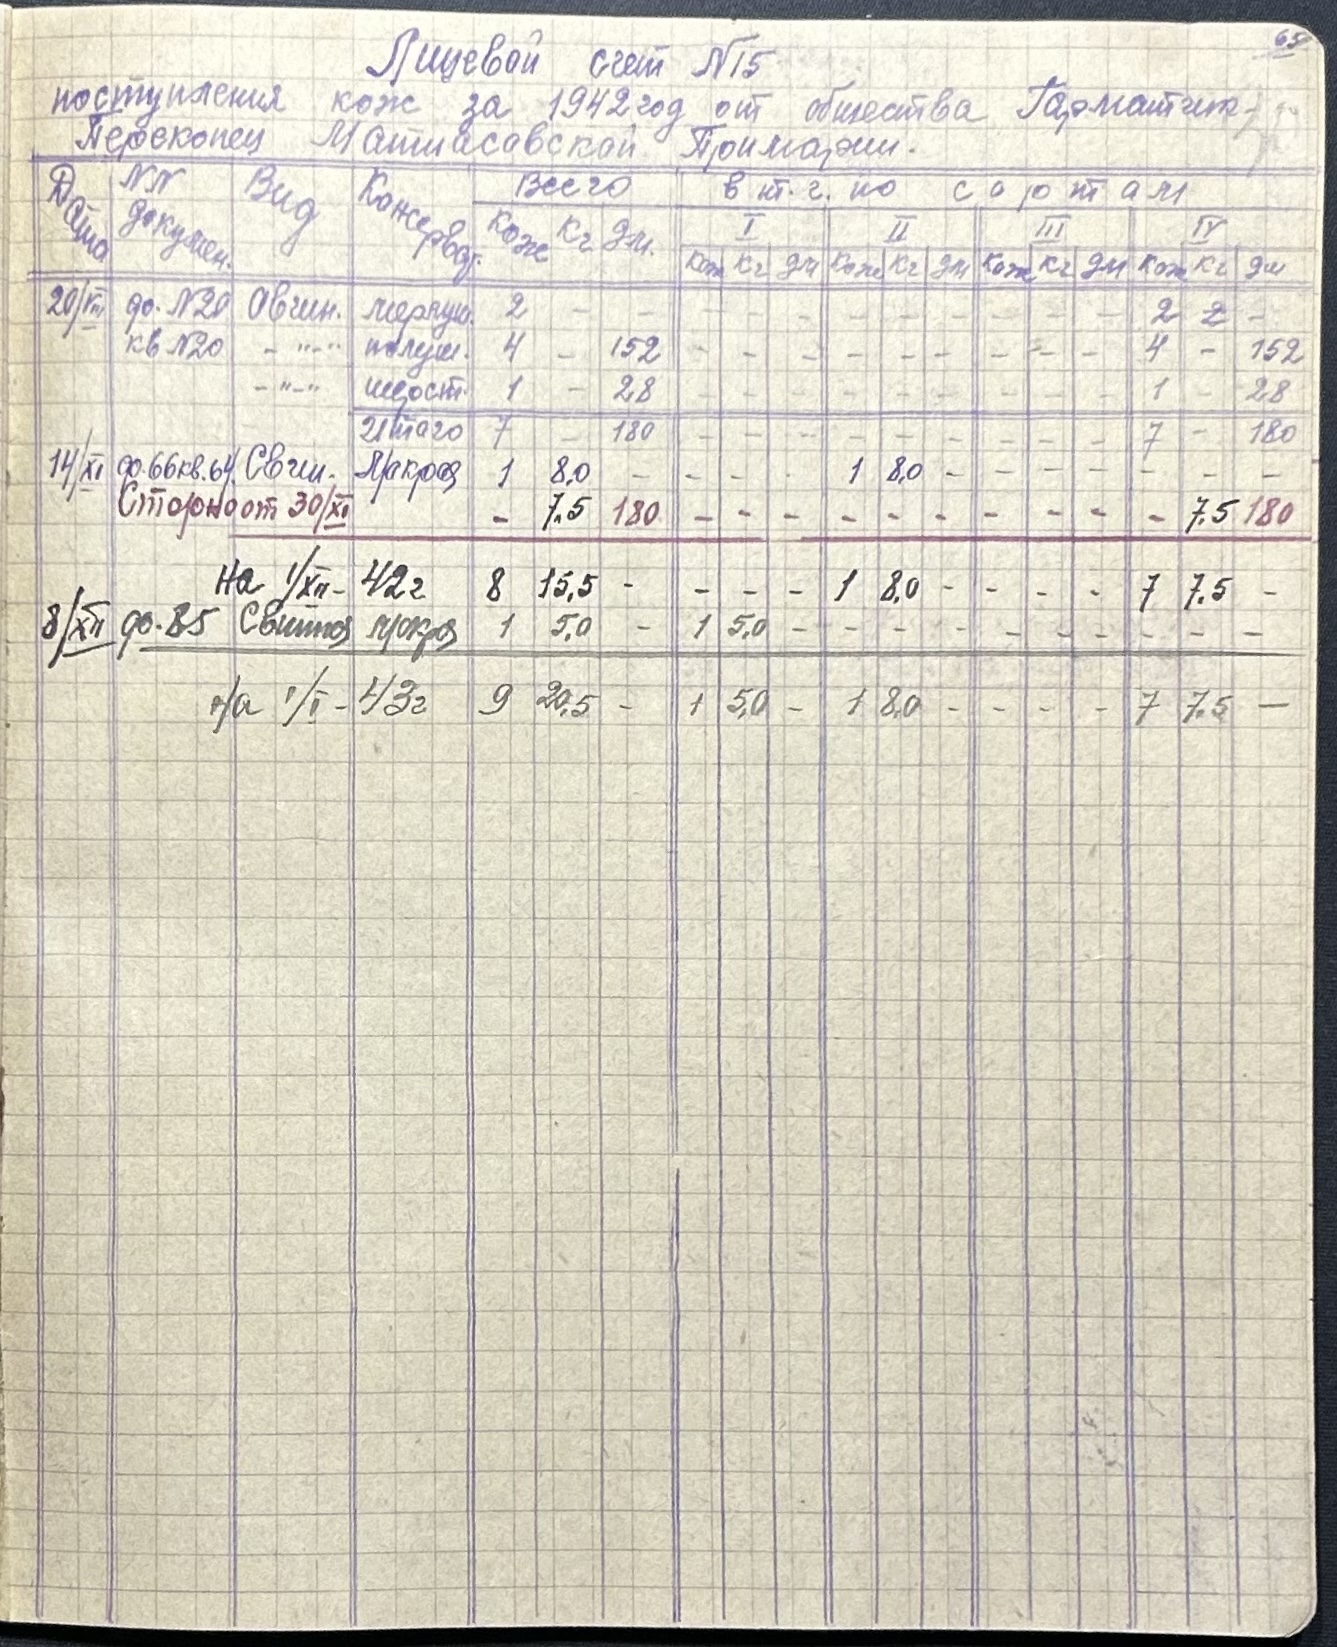 65
Лицевой счет №15
поступления кож за 1942 год от общества
Перекопец Матиасовской Примарии.
Дата №№ докумен. Вид Консервац. Всего в т.ч. по сортам
Кож Кг Дм. I II III IV
Кож Кг Дм Кож Кг Дм Кож Кг Дм Кож Кг Дм
20/VIII до. №20 Овчин. 2 - - - - - - - - - - - - 2 2 -
кв №20 - "-" полуш. 4 - 152 - - - - - - - - - 4 - 152
- "-" 1 - 28 - - - - - - - - - 1 - 28
Итого 7 - 180 - - - - - - - - - 7 - 180
14/XI до.66 кв.64. Свин. Мокрая 1 8,0 - - - - 1 8,0 - - - - - - -
Сторно от 30/XI - 7.5 180 - - - - - - - - - - 7.5 180
На 1/XII - 42 г 8 15,5 - - - - 1 8,0 - - - - 7 7.5 -
8/XII до. 85 Свиная мокрая 1 5,0 - 1 5,0 - - - - - - - - - -
На 1/I - 43 г 9 20,5 - 1 5,0 - 1 8,0 - - - - 7 7.5 -